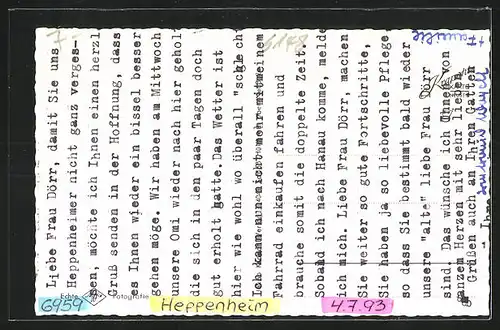 Liebe Frau Dörr, damit Sie uns
Heppenheimer nicht ganz verges-
sen, möchte ich Ihnen einen herzl.
Gruß senden in der Hoffnung, dass
es Ihnen wieder ein bissel besser
gehen möge. Wir haben am Mittwoch
unsere Omi wieder nach hier geholt
die sich in den paar Tagen doch
gut erholt hatte. Das Wetter ist
hier wie wohl wo überall "schlecht
Ich kann nun nicht mehr mit meinem
Fahrrad einkaufen fahren und
brauche somit die doppelte Zeit.
Sobald ich nach Hanau komme, melde
ich mich. Liebe Frau Dörr, machen
Sie weiter so gute Fortschritte,
Sie haben ja so liebevolle Pflege
so dass Sie bestimmt bald wieder
unsere "alte" liebe Frau Dörr
sind. Das wünsche ich Ihnen von
ganzem Herzen mit sehr lieben
Grüßen auch an Ihren Gatten
Familie
5178
Echte Fotografie
6959
Heppenheim
4.7.93